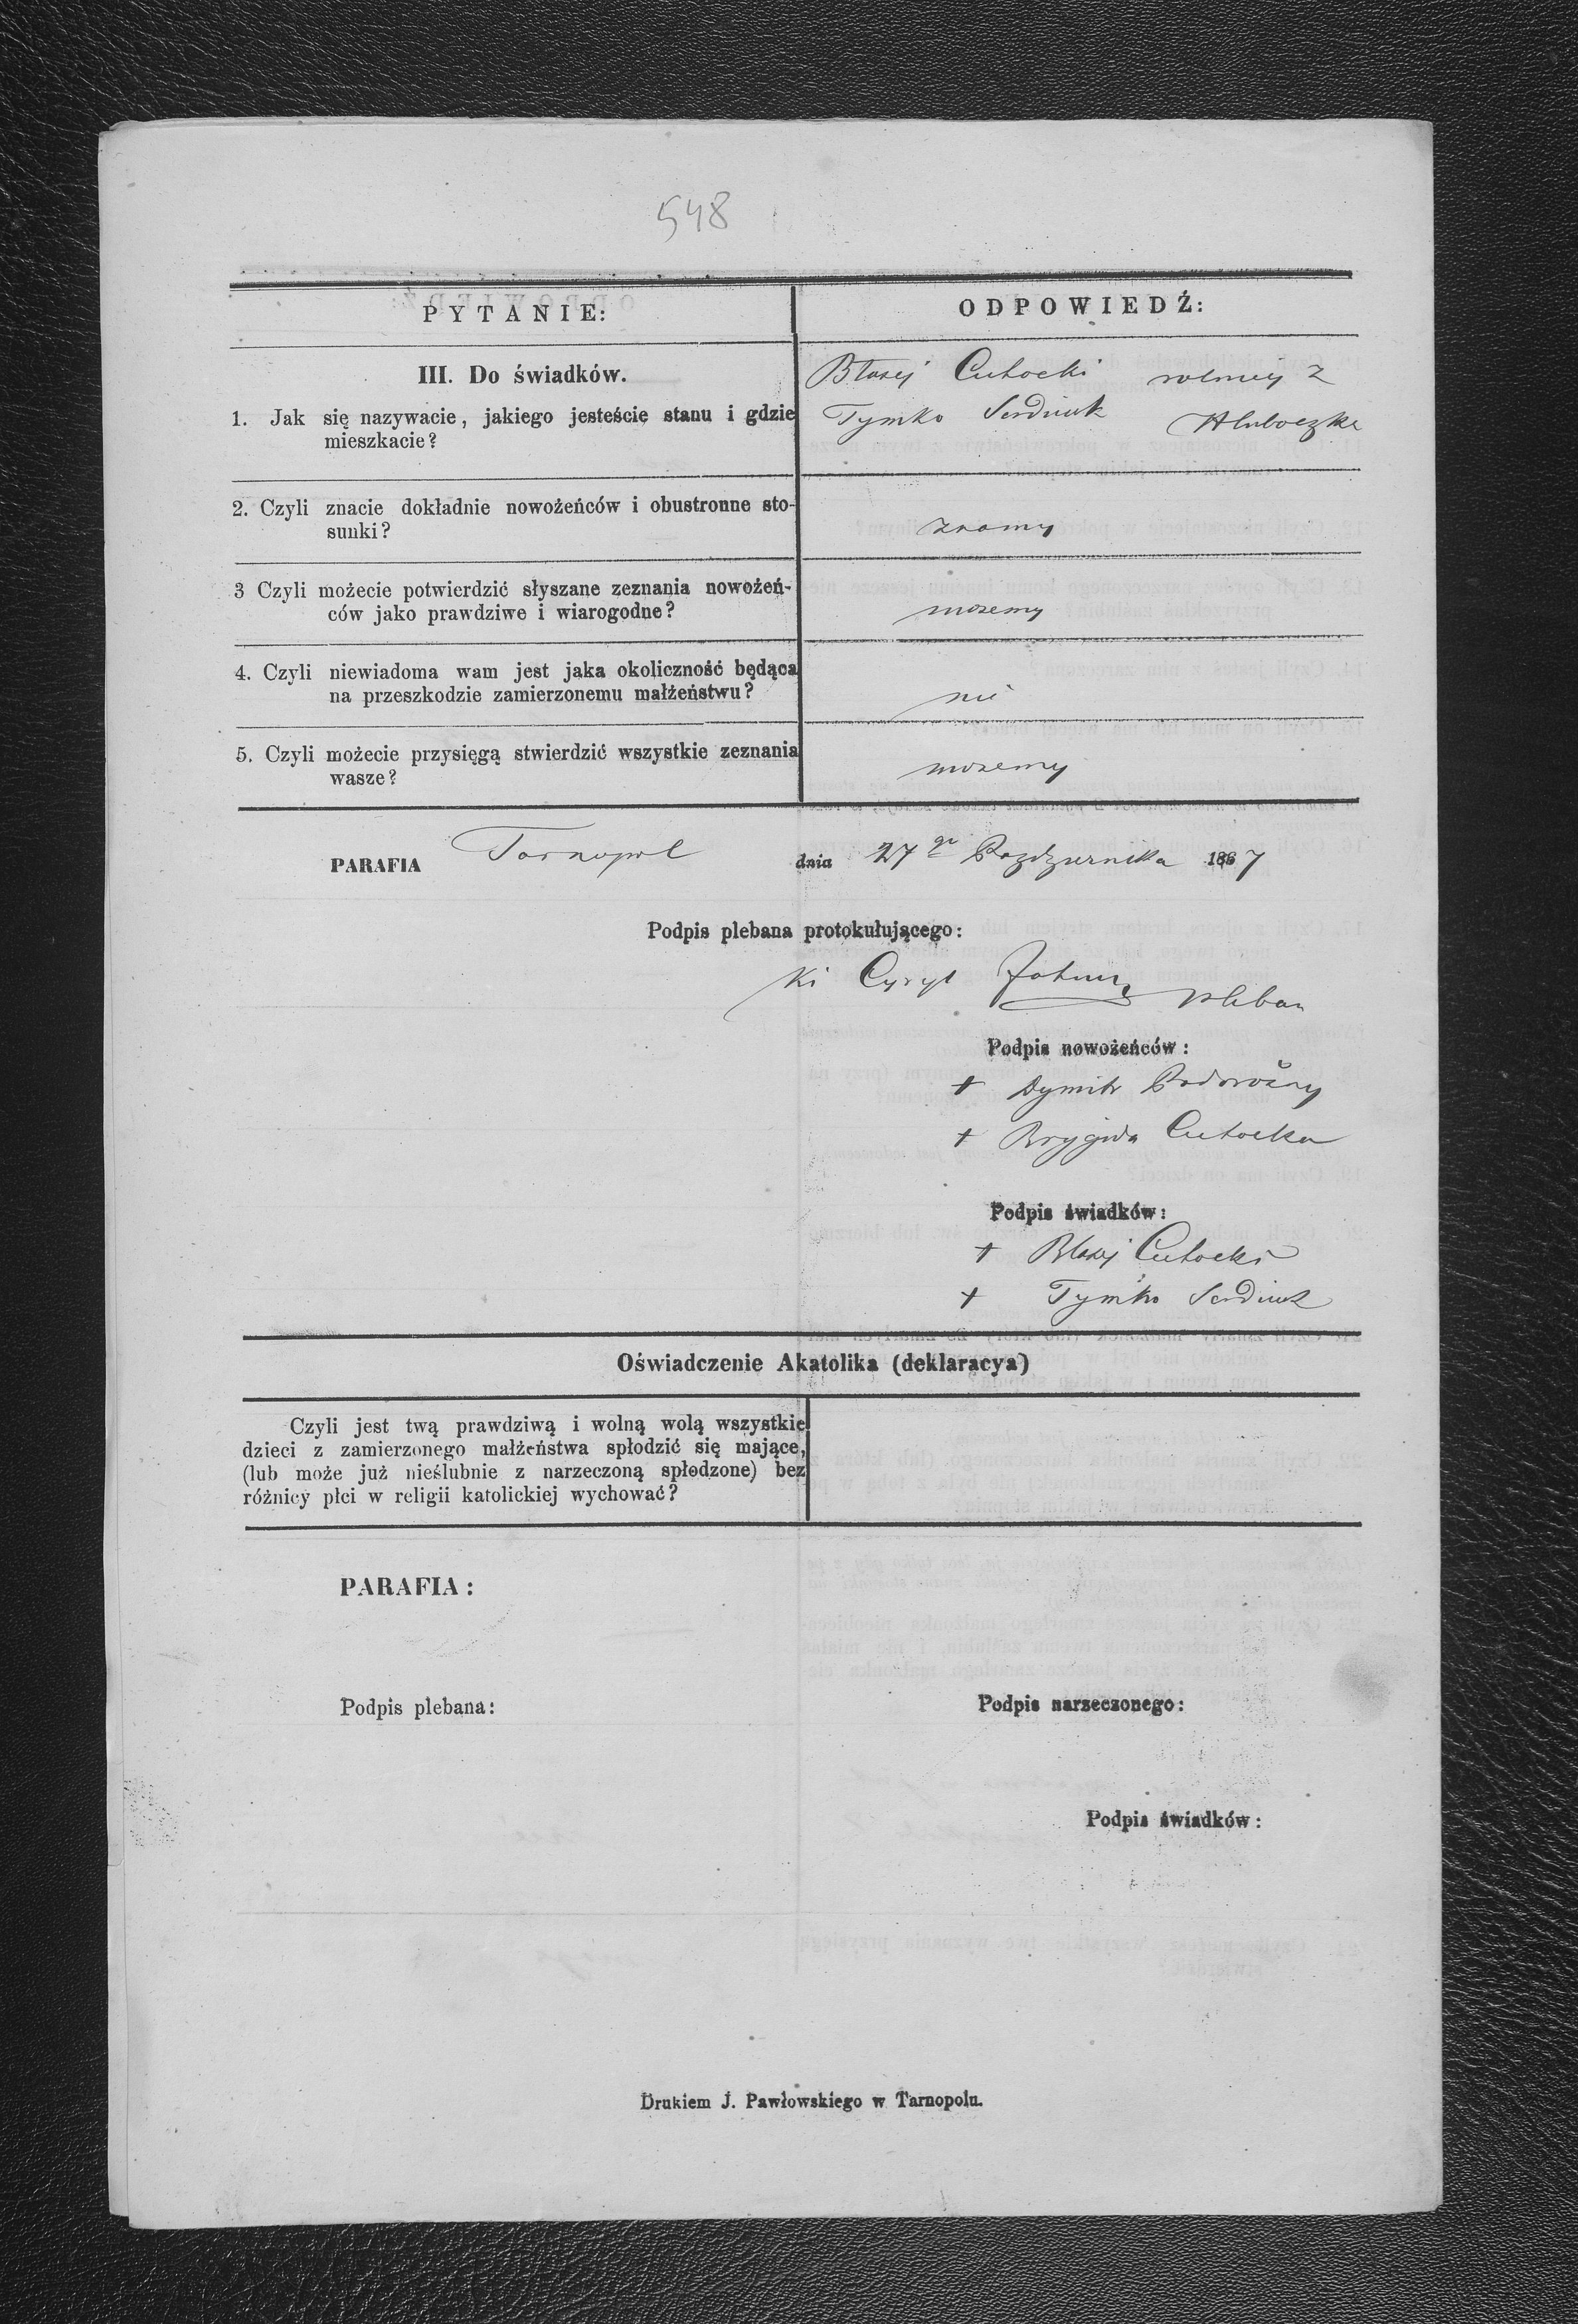 548
PYTANIE:
ODPOWIEDŹ:
III. Do świadków.
1. Jak się nazywacie, jakiego jesteście stanu i gdzie
mieszkacie?
Błażej Cutocki rolnicy z
Tymko Serdiuk Hluboczka
2. Czyli znacie dokładnie nowożeńców i obustronne sto-
sunki?
znamy
3 Czyli możecie potwierdzić słyszane zeznania nowożeń-
ców jako prawdziwe i wiarogodne?
możemy
4. Czyli niewiadoma wam jest jaka okoliczność będąca
na przeszkodzie zamierzonemu małżeństwu?
nie
5. Czyli możecie przysięgą stwierdzić wszystkie zeznania
wasze?
możemy
PARAFIA Tarnopol dnia 27go Pazdziernika 1887
Podpis plebana protokułującego:
Cyryl pleban
Podpis nowożeńców:
+ Dymitr Podorożny
+ Brygida Cutocka
Podpis świadków:
+ Błażej Cutocki
+ Tymko Serdiuk
Oświadczenie Akatolika (deklaracya)
Czyli jest twą prawdziwą i wolną wolą wszystkie
dzieci z zamierzonego małżeństwa spłodzić się mające,
(lub może już nieślubnie z narzeczoną spłodzone) bez
różnicy płci w religii katolickiej wychować?
PARAFIA:
Podpis plebana:
Podpis narzeczonego:
Podpis świadków:
Drukiem J. Pawłowskiego w Tarnopolu.